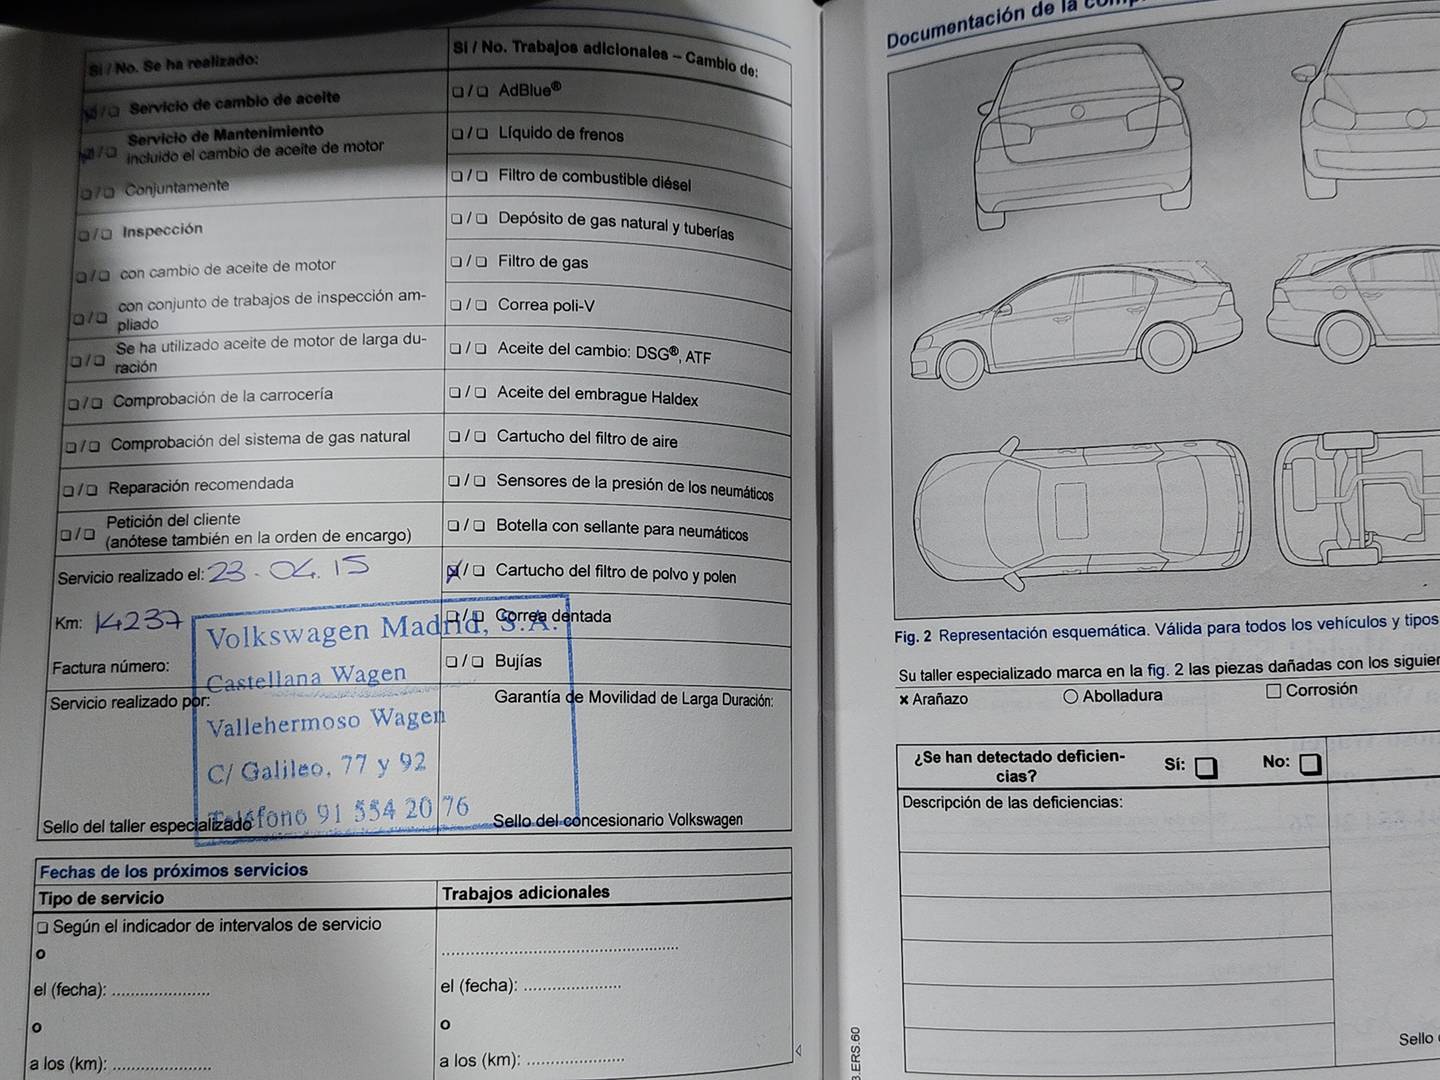 Sí / No. Se ha realizado:
Servicio de cambio de aceite
Servicio de Mantenimiento
incluido el cambio de aceite de motor
Conjuntamente
Inspección
con cambio de aceite de motor
con conjunto de trabajos de inspección am-
pliado
Se ha utilizado aceite de motor de larga du-
ración
Comprobación de la carrocería
Comprobación del sistema de gas natural
Reparación recomendada
Petición del cliente
(anótese también en la orden de encargo)
Servicio realizado el: 23.04.15
Km: 14237
Factura número:
Servicio realizado por:
Sello del taller especializado
Sí / No. Trabajos adicionales – Cambio de:
AdBlue®
Líquido de frenos
Filtro de combustible diésel
Depósito de gas natural y tuberías
Filtro de gas
Correa poli-V
Aceite del cambio: DSG®, ATF
Aceite del embrague Haldex
Cartucho del filtro de aire
Sensores de la presión de los neumáticos
Botella con sellante para neumáticos
Cartucho del filtro de polvo y polen
Correa dentada
Bujías
Garantía de Movilidad de Larga Duración:
Sello del concesionario Volkswagen
Volkswagen Madrid, S.A.
Castellana Wagen
Vallehermoso Wagen
C/ Galileo, 77 y 92
Teléfono 91 554 20 76
Fechas de los próximos servicios
Tipo de servicio
Según el indicador de intervalos de servicio
o
el (fecha): ....................
o
a los (km): ....................
Trabajos adicionales
el (fecha): ....................
o
a los (km): ....................
Documentación de la
Fig. 2 Representación esquemática. Válida para todos los vehículos y tipos
Su taller especializado marca en la fig. 2 las piezas dañadas con los
Arañazo
Abolladura
Corrosión
¿Se han detectado deficien-
cias?
Sí:
No:
Descripción de las deficiencias:
Sello
.ERS.60